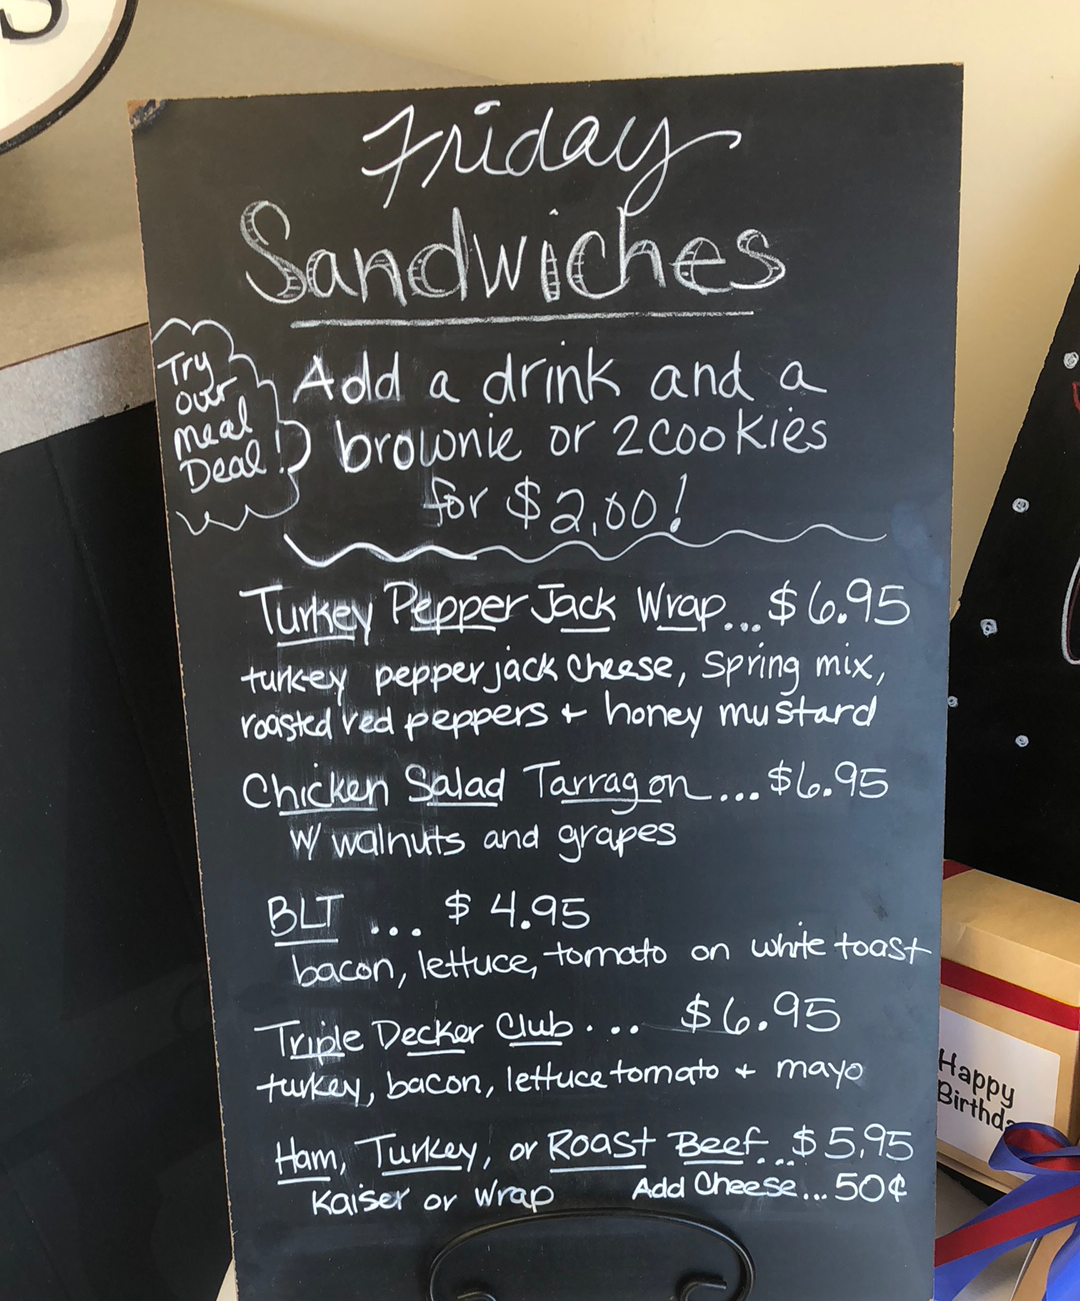 S
Friday
Sandwiches
Try
our
meal
Deal!
Add a drink and a
brownie or 2 cookies
for $2.00!
Turkey Pepper Jack Wrap...$6.95
turkey pepper jack cheese, Spring mix,
roasted red peppers + honey mustard
Chicken Salad Tarragon...$6.95
w/ walnuts and grapes
BLT ... $4.95
bacon, lettuce, tomato on white toast
Triple Decker Club.... $6.95
turkey, bacon, lettuce tomato + mayo
Ham, Turkey, or Roast Beef...$5.95
Kaiser or Wrap Add Cheese...50¢
Happy
Birthda